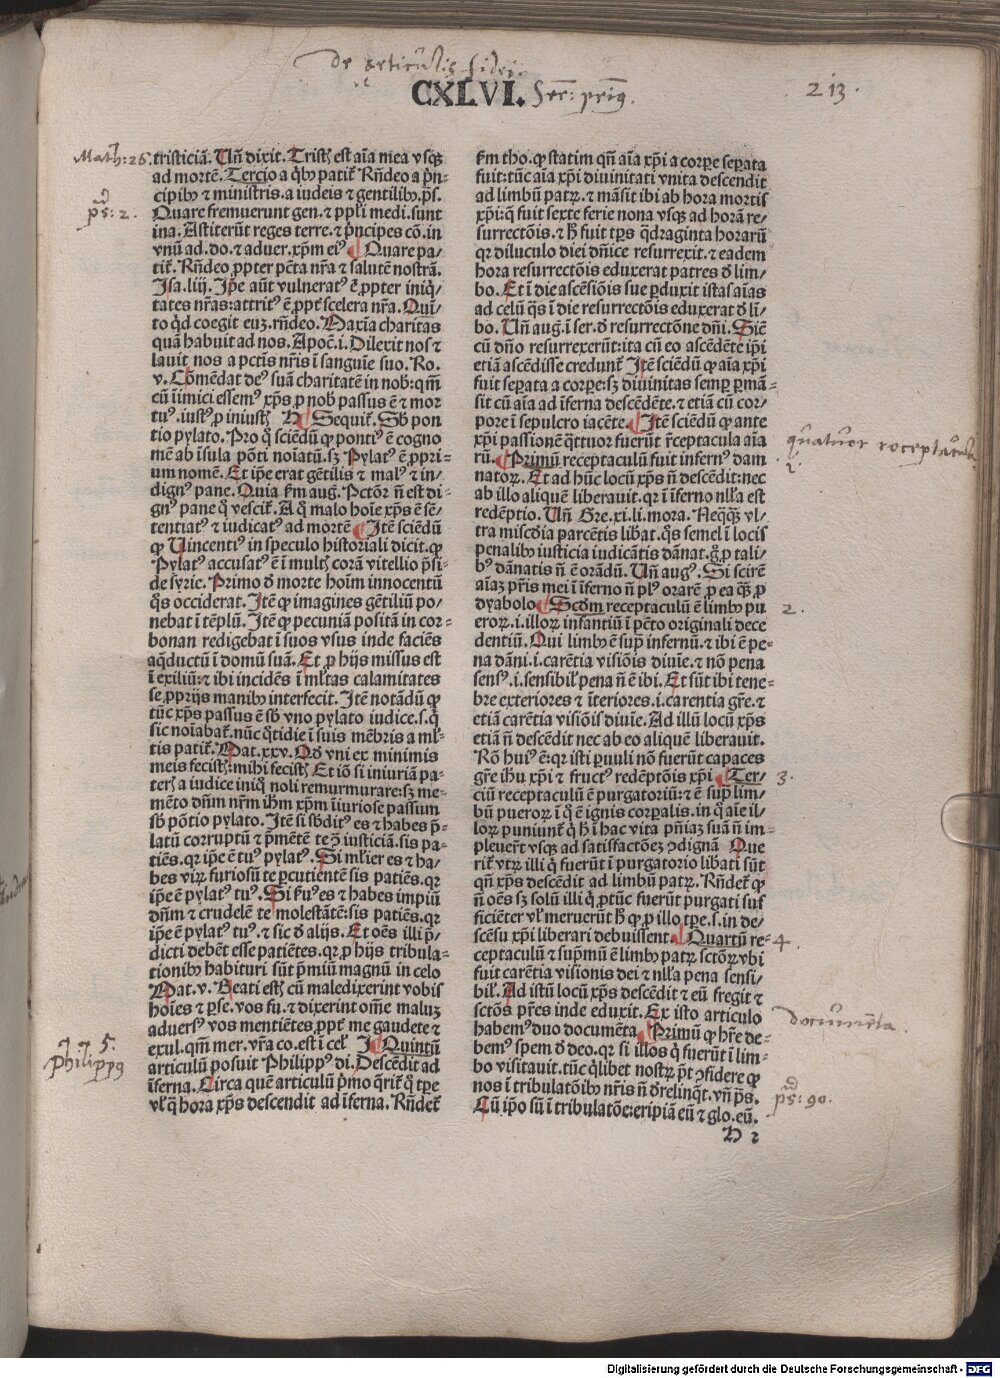 de articulis fidei
CXLVI. Ser: prim9. 213.
Math: 26. tristiciā. Uñ dixit. Tristꝭ est aīa mea vsqꝫ
ad mortē. Tercio a qͥbꝰ patit᷑. Rñdeo a pͥn-
cipibꝰ ⁊ ministris. a iudeis ⁊ gentilibꝰ. pˢ.
pˢ: 2. Quare fremuerunt gen. ⁊ ppl̓i medi. sunt
ina. Astiterūt reges terre. ⁊ pͥncipes cō. in
vnū ad. do. ⁊ aduer. xp̄m eiꝰ ¶ Quare pa-
tit᷑. Rñdeo ꝓpter pctā nr̄a ⁊ salutē nostrā.
Isa. liij. Ip̄e aūt vulneratꝰ ē ꝓpter iniqͥ/
tates nr̄as: attritꝰ ē ꝓpt̓ scelera nr̄a. Qui/
to qͥd coegit euꝫ. rñdeo. Maxīa charitas
quā habuit ad nos. Apoc̄. i. Dilexit nos ⁊
lauit nos a pctīs nr̄is ī sanguīe suo. Ro.
v. Cōmēdat deꝰ suā charitatē in nob̓: qm̄
cū īimici essemꝰ xp̄s ꝓ nob̓ passus ē ⁊ mor
tuꝰ. iustꝰ ꝓ iniustꝭ H ¶ Sequit᷑. Sb̓ pon
tio pylato. Pro qͦ sciēdū ꝙ pontiꝰ ē cogno
mē ab īsula pōti noīatū. sꝫ Pylatꝰ ē ꝓpri-
um nomē. Et ip̄e erat gētilis ⁊ malꝰ ⁊ in/
dignꝰ pane. Quia ſm aug. Pctōr ñ est di-
gnꝰ pane qͦ vescit᷑. A qͦ malo hoīe xp̄s ē sē-
tentiatꝰ ⁊ iudicatꝰ ad mortē ¶ Itē sciēdū
ꝙ Uincentiꝰ in speculo historiali dicit. ꝙ
Pylatꝰ accusatꝰ ē ī multꝭ corā vitellio pͥsi-
de syrie. Primo ō morte hoīm innocentū
qͦs occiderat. Itē ꝙ imagines gētiliū po/
nebat ī tēplū. Itē ꝙ pecuniā positā in cor-
bonan redigebat ī suos vsus inde faciēs
aqͥductū ī domū suā. Et ꝓ hijs missus est
ī exiliū: ⁊ ibi incidēs ī ml̓tas calamitates
se ꝓprijs manibꝰ interfecit. Itē notādū ꝙ
tūc xp̄s passus ē sb̓ vno pylato iudice. s. qͥ
sic noīabat᷑. nūc qͦtidie ī suis mēbris a ml̓-
tis patit᷑. Mat. xxv. Qd̓ vni ex minimis
meis fecistꝭ: mihi fecistꝭ Et iō si iniuriā pa-
terꝭ a iudice iniqͦ noli remurmurare: sꝫ me-
mēto dñm nr̄m ihm xp̄m ī iuriose passum
sb̓ pōtio pylato. Itē si sb̓ditꝰ es ⁊ habes p̄-
latū corruptū ⁊ pͥmētē te ꝯ̄ iusticiā. sis pa-
tiēs. qꝛ ip̄e ē tuꝰ pylatꝰ. Si ml̓ier es ⁊ ha/
bes virꝝ furiosū te ꝑcutientē sis patiēs. qꝛ
ip̄e ē pylatꝰ tuꝰ. Si ſuꝰ es ⁊ habes impiū
dñm ⁊ crudelē te molestātē: sis patiēs. qꝛ
ip̄e ē pylatꝰ tuꝰ. ⁊ sic ō alijs. Et oēs illi p̄-
dicti debēt esse patiētes. qꝛ ꝓ hijs tribula-
tionibꝰ habituri sūt pͥmiū magnū in celo
Mat. v. Beati estꝭ cū maledixerint vobis
hoīes ⁊ ꝑse. vos fu. ⁊ dixerint om̄e maluꝫ
aduersꝰ vos mentiētes. ꝓpt̓ me gaudete ⁊
exul. qm̄ mer. vr̄a co. est ī cel̓ I ¶ Quintū
5. Philippꝰ articulū posuit Philippꝰ di. Descēdit ad
īferna. Circa quē articulū pͥmo qͥrit᷑ qͦ tꝑe
vl̓ qͣ hora xp̄s descendit ad īferna. Rñdet᷑
ſm tho. ꝙ statim qñ aīa xp̄i a corꝑe seꝑata
fuit: tūc aīa xp̄i diuinitati vnita descendit
ad limbū patrꝝ. ⁊ māsit ibi ab hora mortis
xp̄i: q̄ fuit sexte ferie nona vsqꝫ ad horā re/
surrectōis. ⁊ h̓ fuit tꝑs qͣdraginta horarū
qꝛ diluculo diei dñice resurrexit. ⁊ eadem
hora resurrectōis eduxerat patres ō lim/
bo. Et ī die ascēsiōis sue ꝑduxit istas aīas
ad celū qͣs ī die resurrectōis eduxerat ō lī/
bo. Uñ aug. ī ser. ō resurrectōne dñi. Sic̄
cū dño resurrexerūt: ita cū eo ascēdēte ip̄i
etiā ascēdisse credunt᷑ Itē sciēdū ꝙ aīa xp̄i
fuit seꝑata a corꝑe: sꝫ diuinitas semꝑ ꝑmā-
sit cū aīa ad īferna descēdēte. ⁊ etiā cū cor/
pore ī sepulcro iacēte. ¶ Itē sciēdū ꝙ ante
quatuor receptacula xp̄i passionē qͣttuor fuerūt r̄ceptacula aīa
1. rū. ¶ Primū receptaculū fuit infernꝰ dam
natoꝝ. Et ad hūc locū xp̄s ñ descēdit: nec
ab illo aliquē liberauit. qꝛ ī īferno nll̓a est
redēptio. Uñ Gre. xi. li. mora. Neqͣꝙ vl/
tra miscd̓ia parcētis lib̓at. qͦs semel ī locis
penalibꝰ iusticia iudicātis dānat. gͦ ꝓ tali/
bꝰ dānatis ñ ē orādū. Uñ augꝰ. Si scirē
aīaꝫ pr̄is mei ī īferno ñ plꝰ orarē ꝓ ea qͣꝫ ꝓ
2. dyabolo ¶ Scd̓m receptaculū ē limbꝰ pu
eroꝝ. i. illoꝝ infantiū ī pctō originali dece
dentiū. Qui limbꝰ ē supͣ infernū. ⁊ ibi ē pe-
na dāni. i. carētia visiōis diuīe. ⁊ nō pena
sensꝰ. i. sensibil̓ pena ñ ē ibi. Et sūt ibi tene-
bre exteriores ⁊ īteriores. i. carentia gr̄e. ⁊
etiā carētia visiōis diuīe. Ad illū locū xp̄s
etiā ñ descēdit nec ab eo aliquē liberauit.
Rō huiꝰ ē: qꝛ isti ꝑuuli nō fuerūt capaces
3. gr̄e ihu xp̄i ⁊ fructꝰ redēptōis xp̄i ¶ Ter/
ciū receptaculū ē purgatoriū: ⁊ ē supͣ lim-
bū pueroꝝ ī qͦ ē ignis corꝑalis. in qͦ aīe il-
loꝝ puniunt᷑ qͥ h̓ ī hac vita pñiaꝫ suā ñ im-
pleuer̄t vsqꝫ ad satisfactōeꝫ ꝯdignā Que
rit᷑ vtꝝ illi qͥ fuerūt ī purgatorio lib̓ati sūt
qñ xp̄s descēdit ad limbū patrꝝ. Rñdet᷑ ꝙ
ñ oēs sꝫ solū illi qͥ ꝓtūc fuerūt purgati suf
ficiēter vl̓ meruerūt h̓ ꝙ ꝓ illo tꝑe. s. in de/
4. scēsu xp̄i liberari debuissent. ¶ Quartū re-
ceptaculū ē supͥmū ē limbꝰ patrꝝ sctōꝝ vbi
fuit carētia visionis dei ⁊ nll̓a pena sensi/
bil̓. Ad istū locū xp̄s descēdit ⁊ eū fregit ⁊
sctōs pr̄es inde eduxit. Ex isto articulo
documēta. habemꝰ duo documēta. ¶ Primū ꝙ hr̄e de-
bemꝰ spem ō deo. qꝛ si illos qͥ fuerūt ī lim-
bo visitauit. tūc qͥlibet nostꝝ pͭt ꝯfidere ꝙ
nos ī tribulatōibꝰ nr̄is ñ ōrelinqͭt. vñ pˢ.
pˢ: 90. Cū ip̄o sū ī tribulatōe: eripiā eū ⁊ glo. eū.
H 2
Digitalisierung gefördert durch die Deutsche Forschungsgemeinschaft - DFG